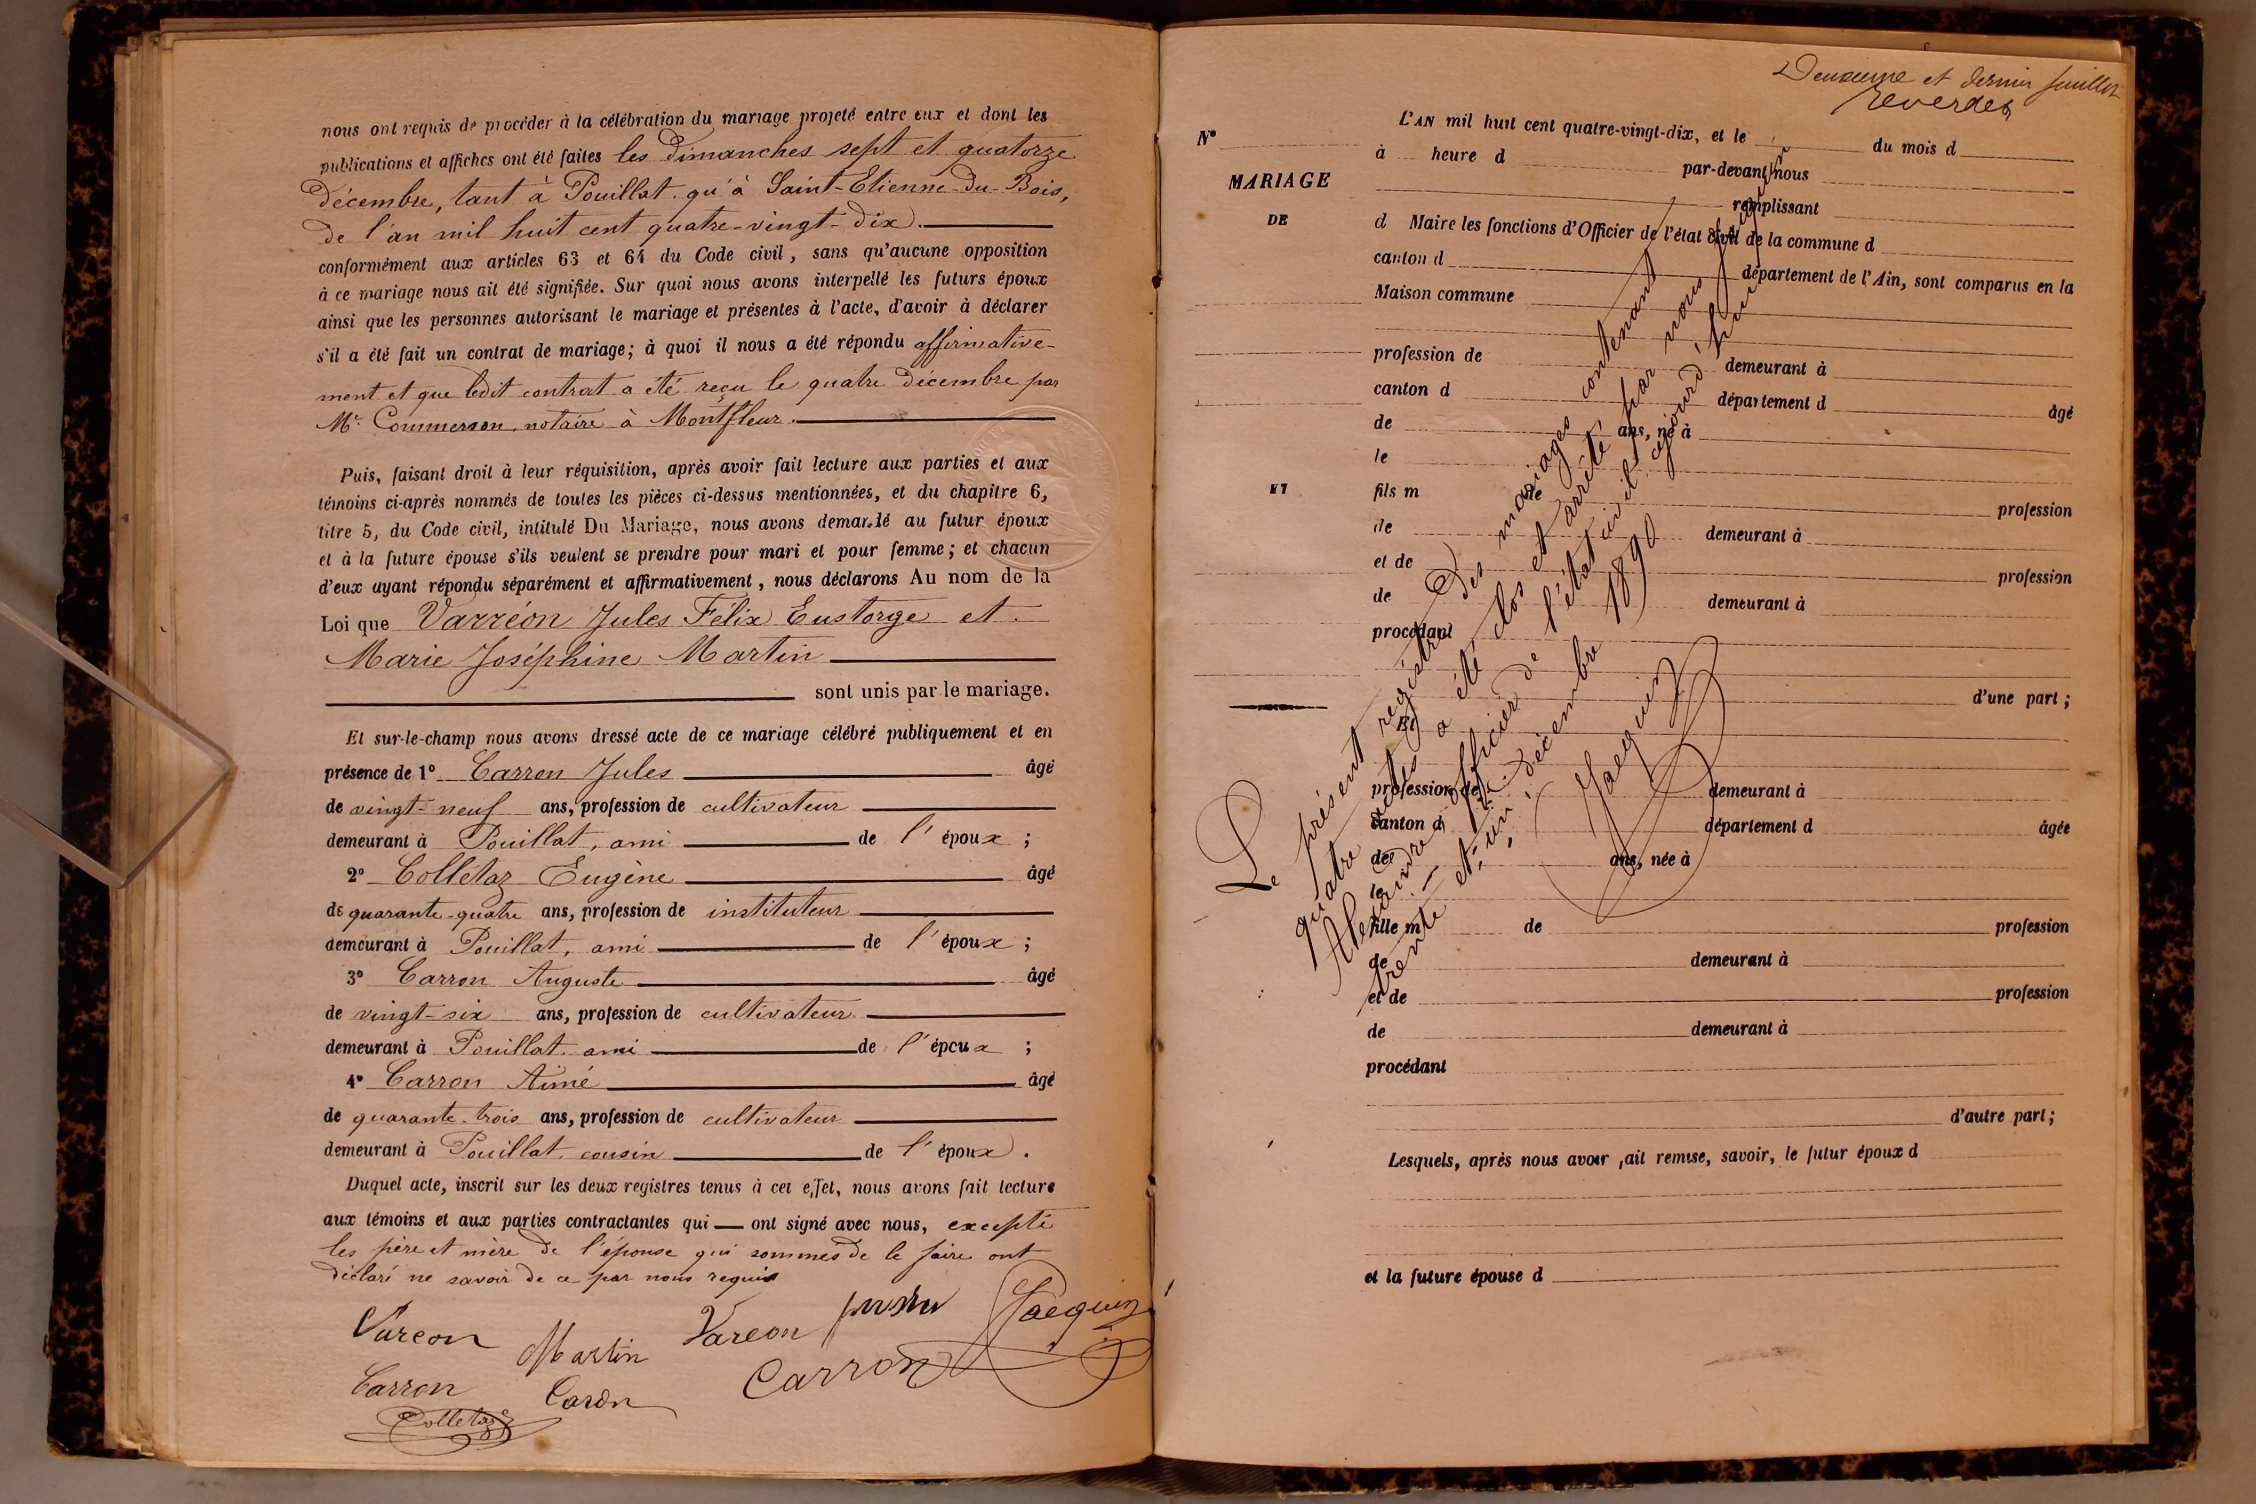 nous ont requis de procéder à la célébration du mariage projeté entre eux et dont les
publications et affiches ont été faites les dimanches sept et quatorze
décembre, tant à Pouillat qu'à Saint-Etienne-du-Bois,
de l'an mil huit cent quatre-vingt-dix.
conformément aux articles 63 et 64 du Code civil, sans qu'aucune opposition
à ce mariage nous ait été signifiée. Sur quoi nous avons interpellé les futurs époux
ainsi que les personnes autorisant le mariage et présentes à l'acte, d'avoir à déclarer
s'il a été fait un contrat de mariage; à quoi il nous a été répondu affirmative-
ment et que ledit contrat a été reçu le quatre décembre par
Me Commerson, notaire à Montfleur.
Puis, faisant droit à leur réquisition, après avoir fait lecture aux parties et aux
témoins ci-après nommés de toutes les pièces ci-dessus mentionnées, et du chapitre 6,
titre 5, du Code civil, intitulé Du Mariage, nous avons demandé au futur époux
et à la future épouse s'ils veulent se prendre pour mari et pour femme; et chacun
d'eux ayant répondu séparément et affirmativement, nous déclarons Au nom de la
Loi que Varréon Jules Félix Eustorge et
Marie Joséphine Martin
sont unis par le mariage.
Et sur-le-champ nous avons dressé acte de ce mariage célébré publiquement et en
présence de 1° Carron Jules âgé
de vingt-neuf ans, profession de cultivateur
demeurant à Pouillat, ami de l'époux;
2° Collétaz Eugène âgé
de quarante-quatre ans, profession de instituteur
demeurant à Pouillat, ami de l'époux;
3° Carron Auguste âgé
de vingt-six ans, profession de cultivateur
demeurant à Pouillat, ami de l'époux;
4° Carron Aimé âgé
de quarante-trois ans, profession de cultivateur
demeurant à Pouillat, cousin de l'époux.
Duquel acte, inscrit sur les deux registres tenus à cet effet, nous avons fait lecture
aux témoins et aux parties contractantes qui — ont signé avec nous, excepté
les père et mère de l'épouse qui sommés de le faire ont
déclaré ne savoir de ce par nous requis
Vareon Martin Vareon Jacquin
Carron Caron Carron
Colletaz
Deuxième et dernier feuillet
Reverdez
N°
MARIAGE
DE
ET
L'AN mil huit cent quatre-vingt-dix, et le du mois d
à heure d par-devant nous
remplissant
d Maire les fonctions d'Officier de l'état civil de la commune d
canton d département de l'Ain, sont comparus en la
Maison commune
profession de demeurant à
canton d département d âgé
de ans, né à
le
fils m de profession
de demeurant à
et de profession
de demeurant à
procédant
d'une part;
Et
profession de demeurant à
canton d département d âgée
de ans, née à
le
fille m de profession
de demeurant à
et de profession
de demeurant à
procédant
d'autre part;
Lesquels, après nous avoir fait remise, savoir, le futur époux d
et la future épouse d
Le présent registre des mariages contenant
quatre actes a été clos et arrêté par nous
Alexandre officier de l'état civil cejourd'hui
trente et un décembre 1890
Jacquin